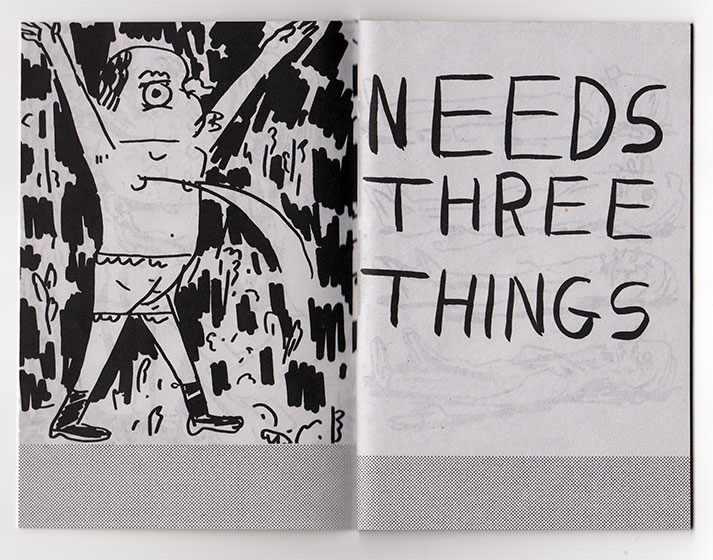 NEEDS
THREE
THINGS